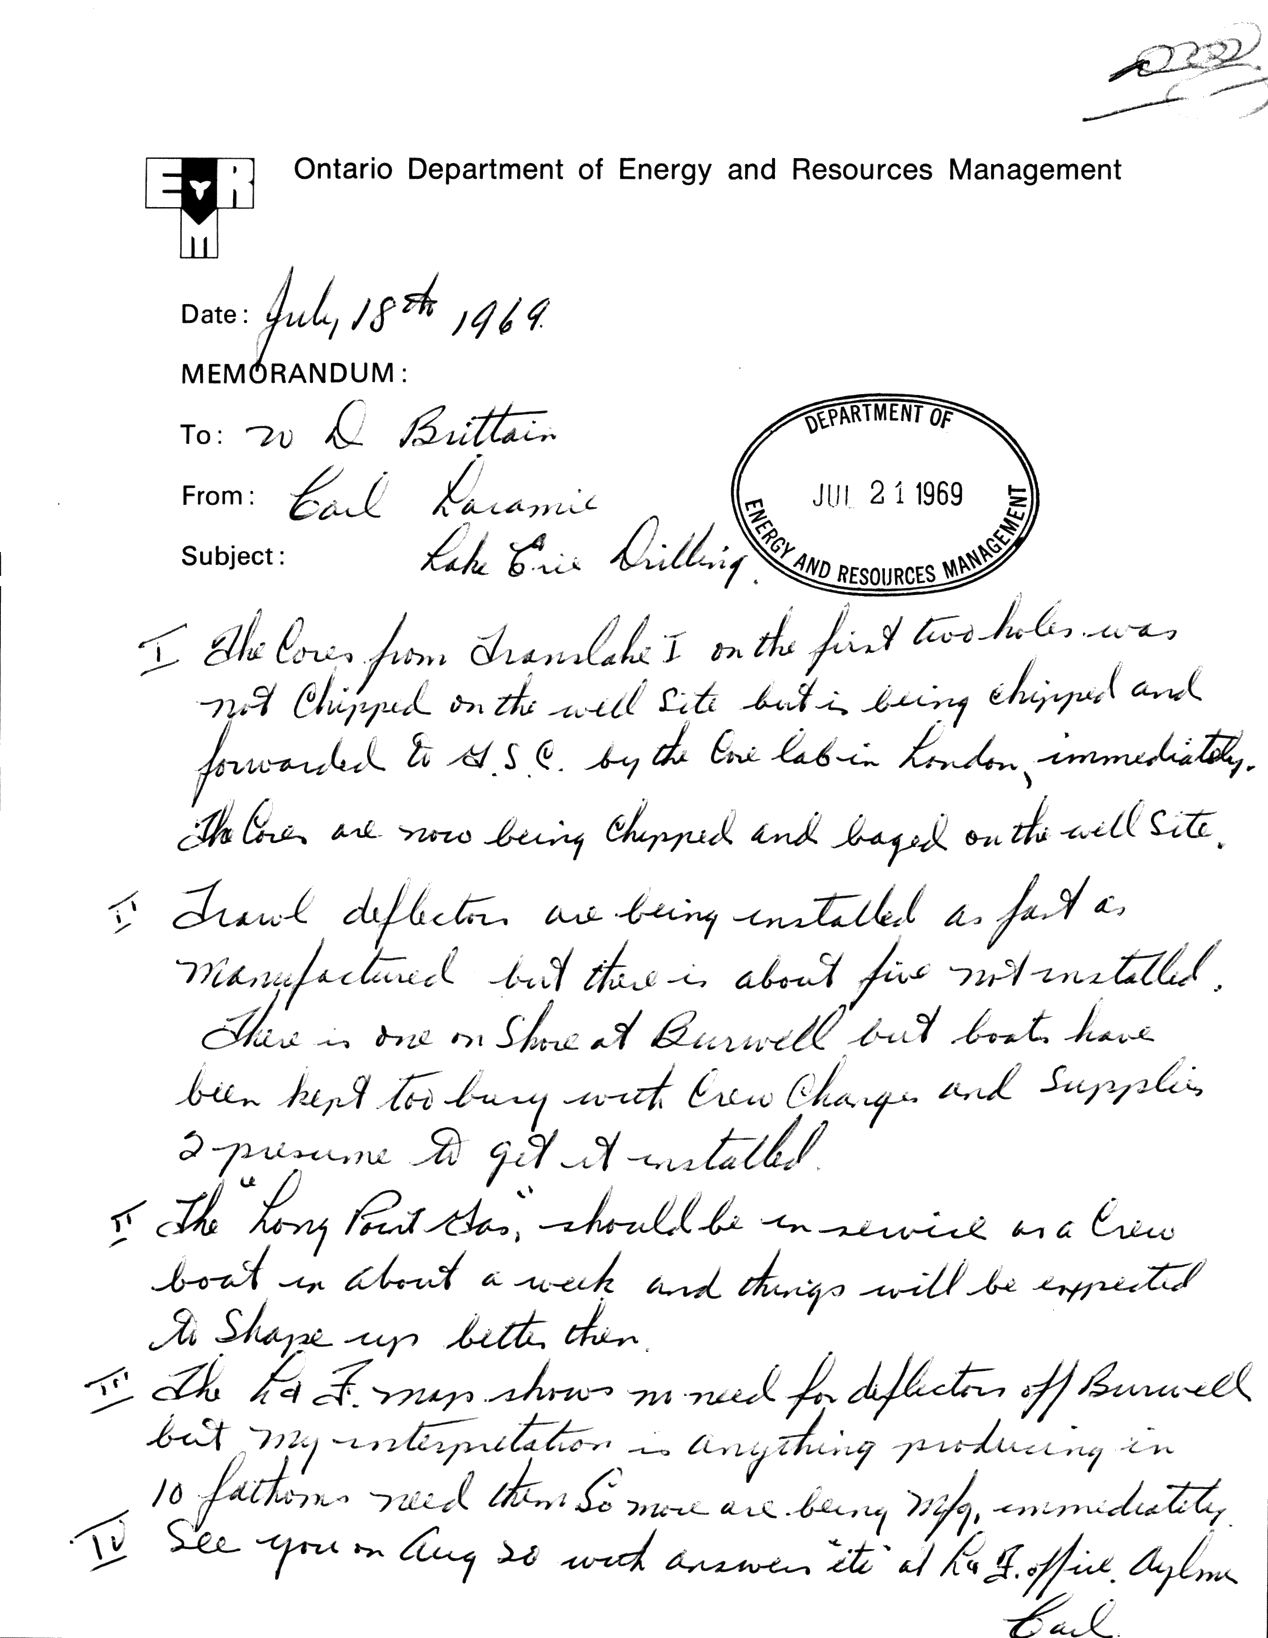 ERM
Ontario Department of Energy and Resources Management
Date: July 18th 1969.
MEMORANDUM:
To: W D Brittain
From: Carl Laramie
Subject: Lake Erie Drilling.
DEPARTMENT OF
JUL 21 1969
ENERGY AND RESOURCES MANAGEMENT
I The Cores from Translake I on the first two holes was
not Chipped on the well Site but is being chipped and
forwarded to G.S.C. by the Core lab in London, immediately.
The Cores are now being Chipped and baged on the well Site.
II Trawl deflectors are being installed as fast as
manufactured but there is about five not installed.
There is one on Shore at Burwell but boats have
been kept too busy with Crew Changes and Supplies
I presume to get it installed.
II The "Long Point Gas," should be in service as a Crew
boat in about a week and things will be expected
to Shape up better then.
III The L & F. map shows no need for deflectors off Burwell
but my interpretation is anything producing in
10 fathoms need them So more are being M/g, immediately.
IV See you on Aug 20 with answers "etc" at L & F. office. Aylmer
Carl.